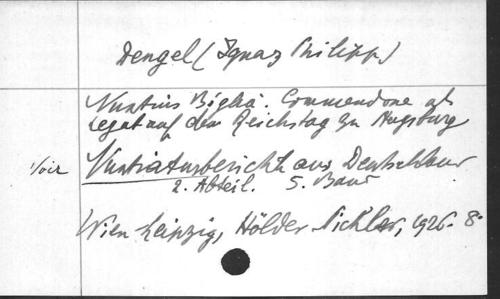 Dengel (Ignaz Philipp)
Nuntius Biglia. Commendone als
Legat auf dem Reichstag zu Augsburg
Voir Nuntiaturberichte aus Deutschland
2. Abteil. 5. Band
Wien Leipzig, Hölder Pichler, 1926. 8°